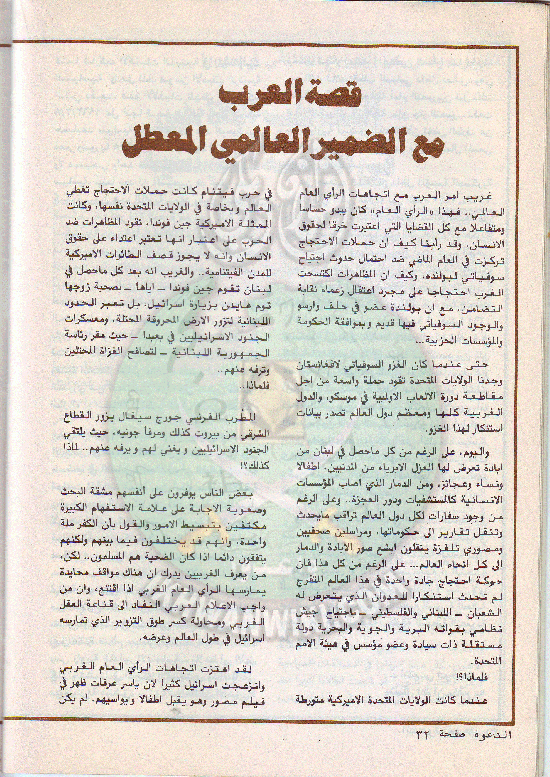 قصة العرب
مع الضمير العالمي المعطل
غريب امر العرب مع اتجاهات الرأي العام
العالمي.. فهذا «الرأي العام» كان يبدو حساسا
ومتفاعلا مع كل القضايا التي اعتبرت خرقا لحقوق
الانسان. وقد رأينا كيف ان حملات الاحتجاج
تركزت في العام الماضي ضد احتمال حدوث اجتياح
سوفياتي لبولنده، وكيف ان المظاهرات اكتسحت
الغرب احتجاجا على مجرد اعتقال زعماء نقابة
التضامن. مع ان بولندة عضو في حلف وارسو
والوجود السوفياتي فيها قديم وبموافقة الحكومة
والمؤسسات الحزبية...
حتى عندما كان الغزو السوفياتي لافغانستان
وجدنا الولايات المتحدة تقود حملة واسعة من اجل
مقاطعة دورة الالعاب الاولمبية في موسكو، والدول
الغربية كلها ومعظم دول العالم تصدر بيانات
استنكار لهذا الغزو.
واليوم، على الرغم من كل ماحصل في لبنان من
ابادة تعرض لها العزل الابرياء من المدنيين. اطفالا
ونساء وعجائز، ومن الدمار الذي اصاب المؤسسات
الانسانية كالمستشفيات ودور العجزة.. وعلى الرغم
من وجود سفارات لكل دول العالم تراقب مايحدث
وتنقل تقارير الى حكوماتها، ومراسلين صحفيين
ومصوري تلفزة ينقلون ابشع صور الابادة والدمار
الى كل انحاء العالم... على الرغم من كل هذا فان
حركة احتجاج جادة واحدة في هذا العالم المتفرج
لم تحدث استنكارا للعدوان الذي يتعرض له
الشعبان ــ اللبناني والفلسطيني ــ باجتياح جيش
نظامي بقواته البرية والجوية والبحرية دولة
مستقلة ذات سيادة وعضو مؤسس في هيئة الامم
المتحدة.
فلماذا؟!
عندما كانت الولايات المتحدة الاميركية متورطة
في حرب فيتنام كانت حملات الاحتجاج تغطي
العالم وبخاصة في الولايات المتحدة نفسها، وكانت
الممثلة الاميركية جين فوندا، تقود المظاهرات ضد
الحرب على اعتبار انها تعتبر اعتداء على حقوق
الانسان وانه لا يجوز قصف الطائرات الاميركية
للمدن الفيتنامية.. والغريب انه بعد كل ماحصل في
لبنان تقوم جين فوندا ــ اياها ــ بصحبة زوجها
توم هايدن بزيارة اسرائيل. بل تعبر الحدود
اللبنانية لتزور الارض المحروقة المحتلة، ومعسكرات
الجنود الاسرائيليين في بعبدا ــ حيث مقر رئاسة
الجمهورية اللبنانية ــ لتصافح الغزاة المحتلين
وترفه عنهم..
فلماذا..
المطرب الفرنسي جورج سيغال يزور القطاع
الشرقي من بيروت كذلك ومرفأ جونيه، حيث يلتقي
الجنود الاسرائيليين ويغني لهم ويرفه عنهم.. لماذا
كذلك؟!
بعض الناس يوفرون على أنفسهم مشقة البحث
وصعوبة الاجابة على علامة الاستفهام الكبيرة
مكتفين بتبسيط الامور والقول بأن الكفر ملة
واحدة، وانهم قد يختلفون فيما بينهم ولكنهم
يتفقون دائما اذا كان الضحية هم المسلمون.. لكن،
من يعرف الغربيين يدرك ان هناك مواقف محايدة
يمارسها الرأي العام الغربي اذا اقتنع، وان من
واجب الاعلام العربي النفاد الى قناعة العقل
الغربي، ومحاولة كسر طوق التزوير الذي تمارسه
اسرائيل في طول العالم وعرضه.
لقد اهتزت اتجاهات الرأي العام الغربي
وانزعجت اسرائيل كثيرا لان ياسر عرفات ظهر في
فيلم مصور وهو يقبل اطفالا ويواسيهم. لم يكن
الدعوه صفحة ٣٢